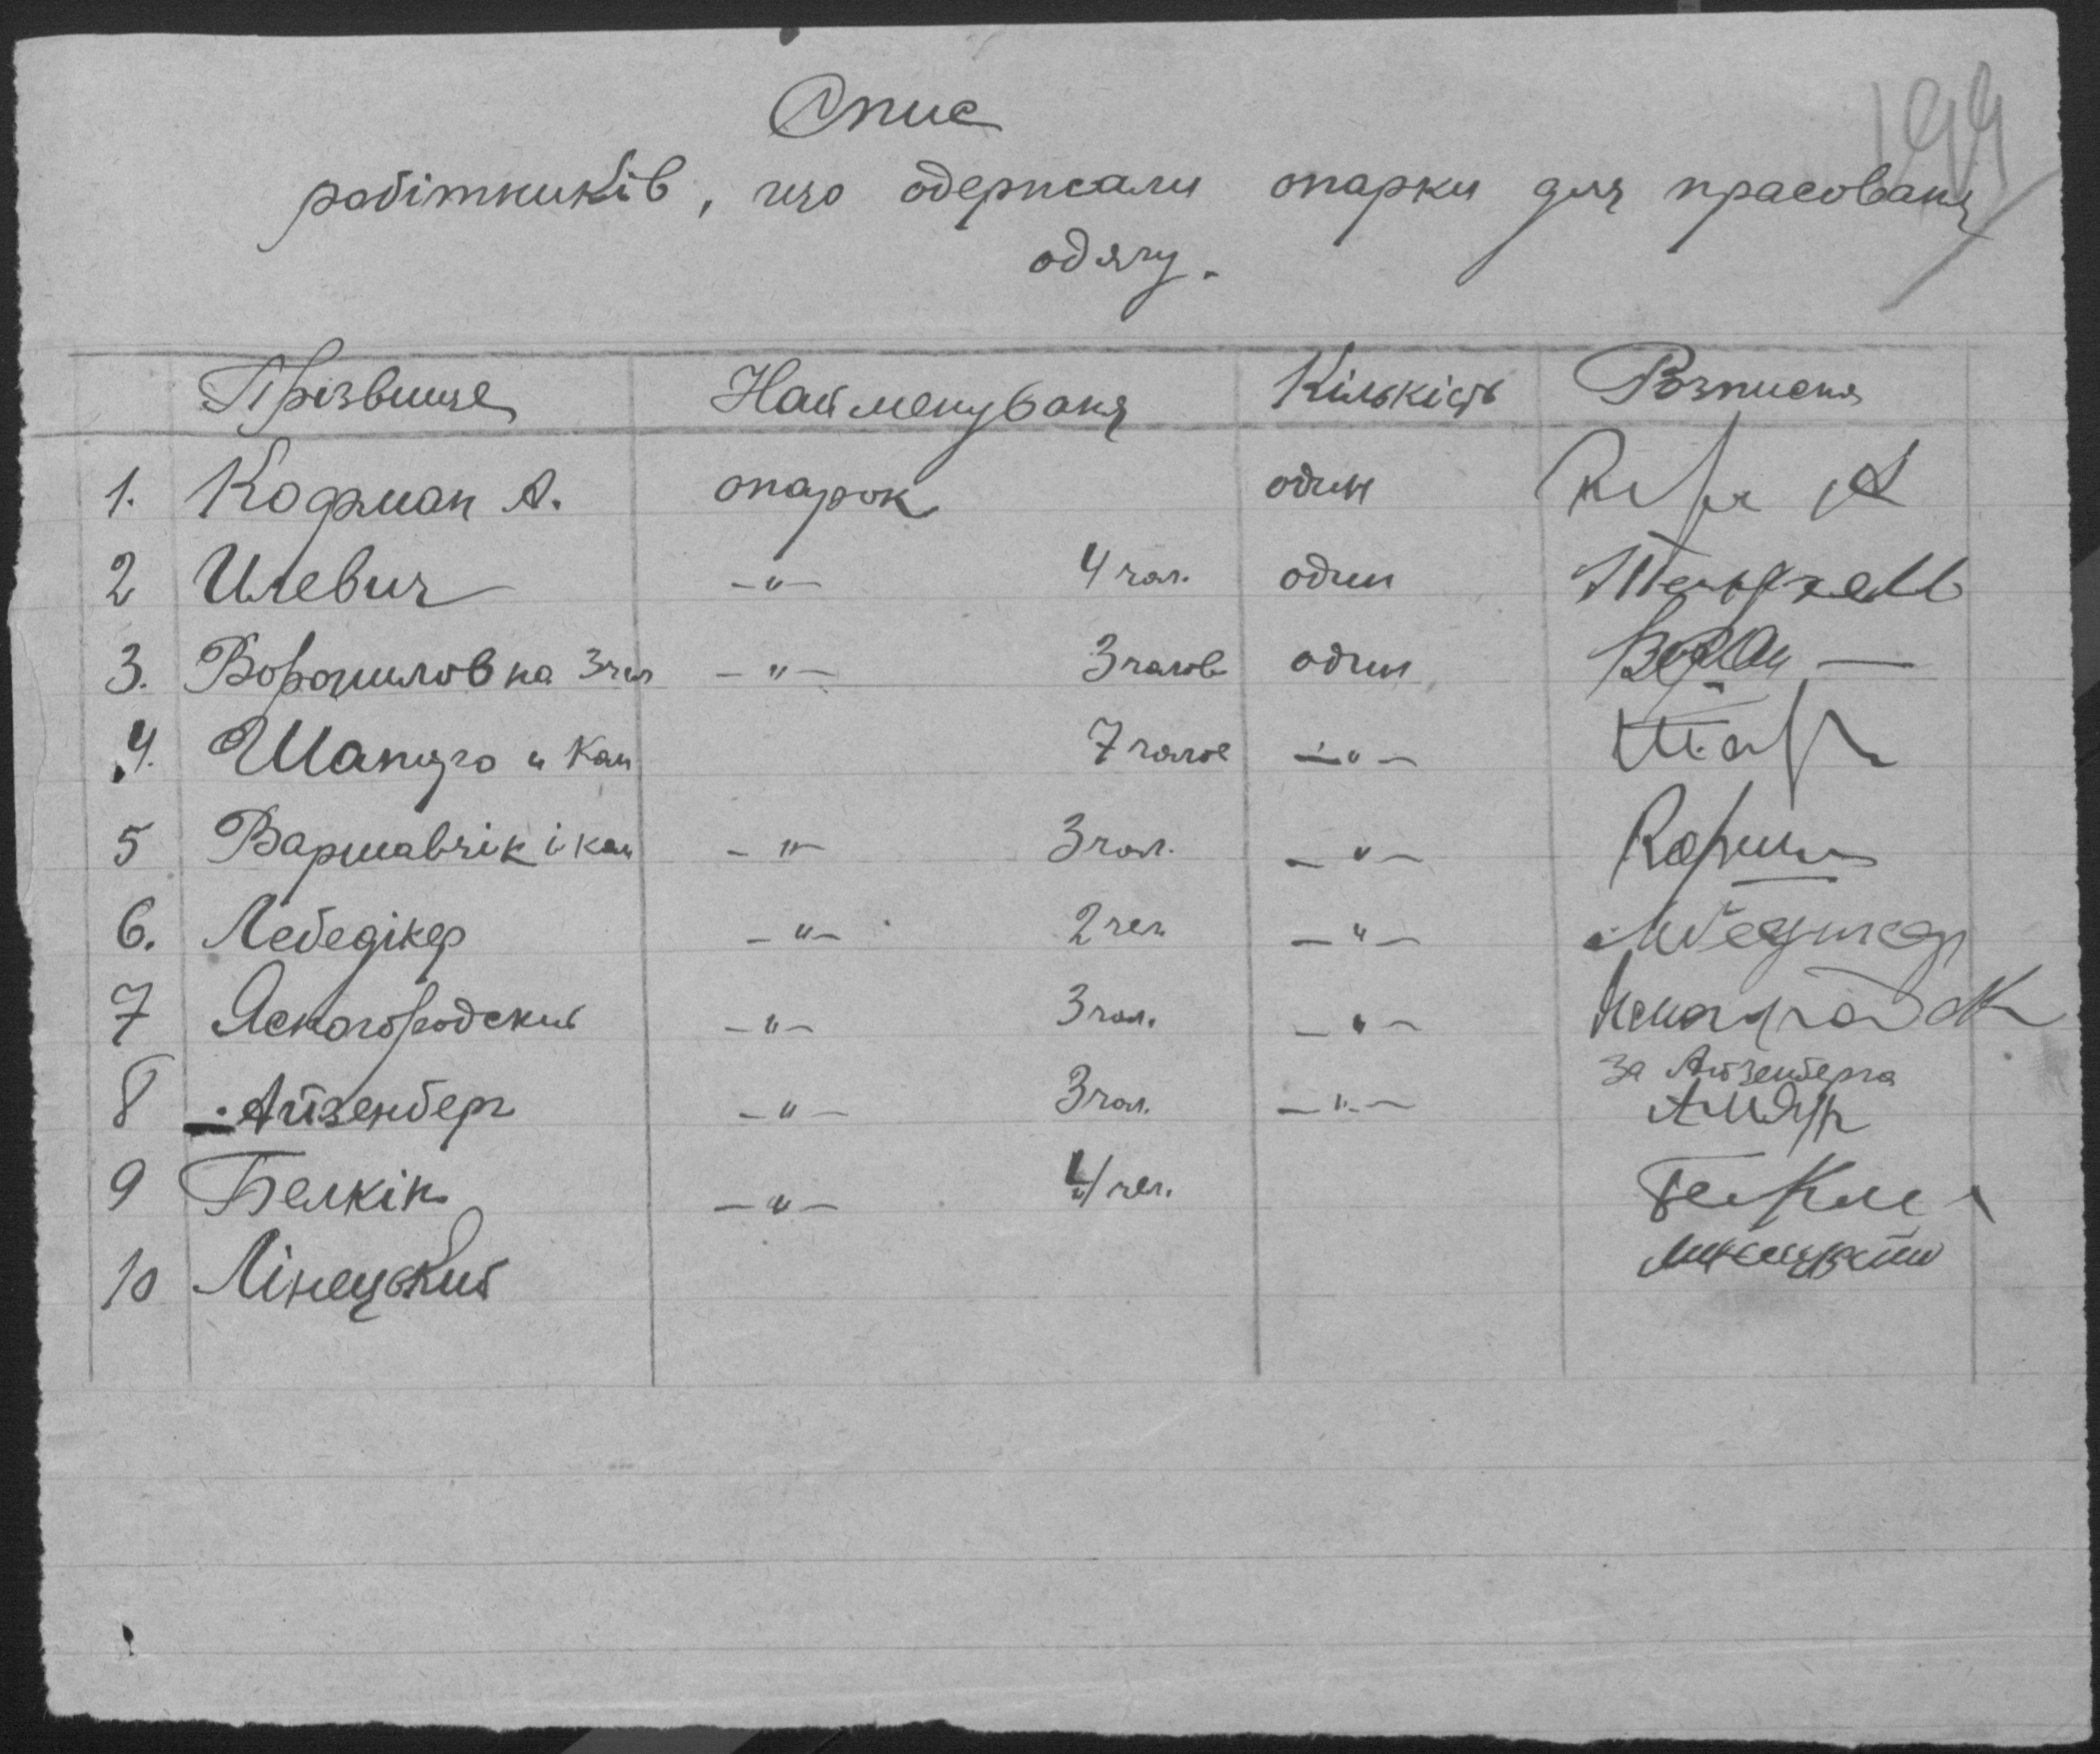 199
Опис
робітників, що одержали опарки для прасованя
одягу.
Прізвище Найменуваня Кількість Розписка
1. Кофман А. опарок один
2 Илевич —"— 4 чол. один
3. Ворошилов на 3 чол —"— 3 чолов один
4. Шапиро и Кан 7 чолов —"—
5 Варшавчік і кан —"— 3 чол. —"—
6. Лебедікер —"— 2 чел —"— Лебедикер
7 Ясногородский —"— 3 чол. —"—
8 Айзенберг —"— 3 чол. —"— за Айзенберга
9 Белкін —"— 4 чел. Белкин
10 Лінецький Линецький